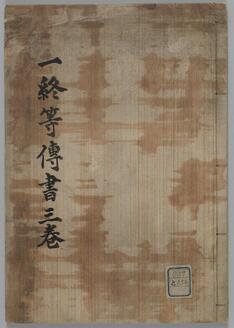 一終等傳書三巻